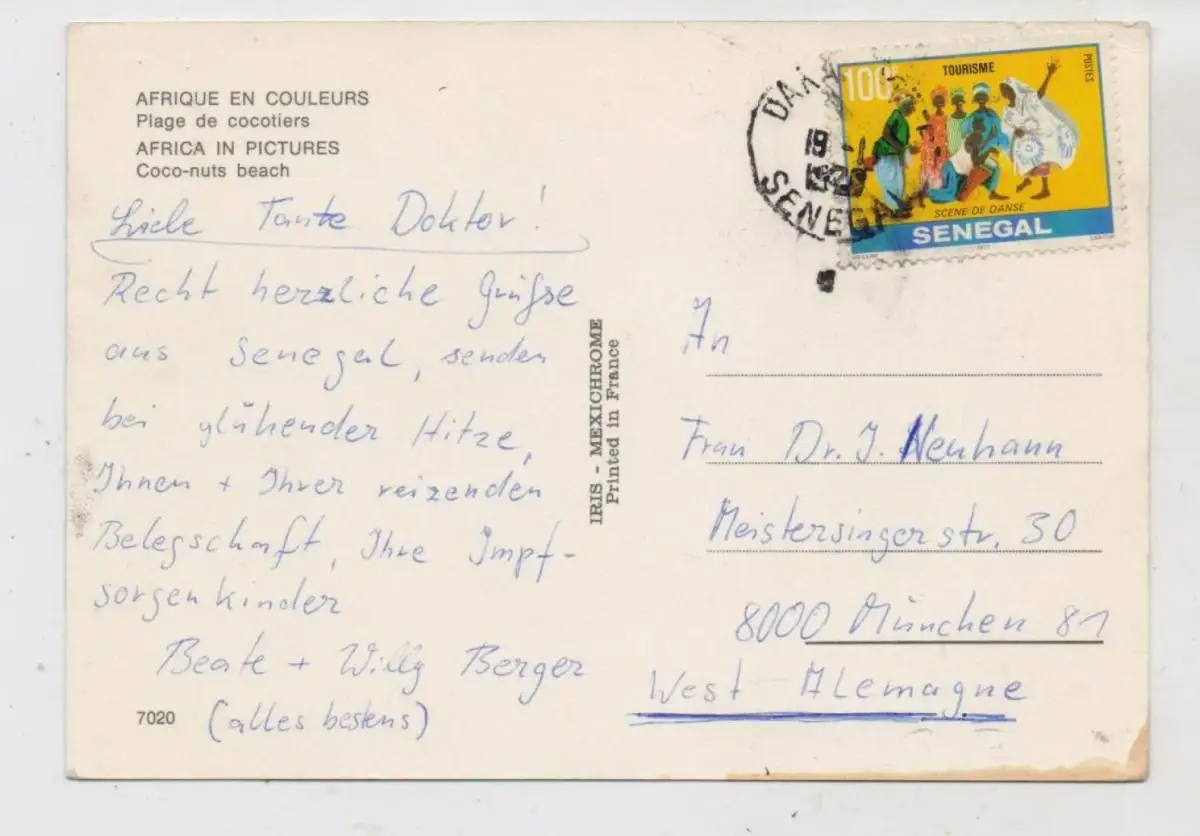 AFRIQUE EN COULEURS
Plage de cocotiers
AFRICA IN PICTURES
Coco-nuts beach
Liebe Tante Doktor!
Recht herzliche Grüße
aus Senegal, senden
bei glühender Hitze,
Ihnen + Ihrer reizenden
Belegschaft, Ihre Impf-
sorgenkinder
Beate + Willy Berger
(alles bestens)
7020
IRIS - MEXICHROME
Printed in France
100F
TOURISME
POSTES
SCENE DE DANSE
SENEGAL
1977
DAKAR
19
SENEGAL
An
Frau Dr. J. Neuhann
Meistersingerstr. 30
8000 München 81
West Alemagne